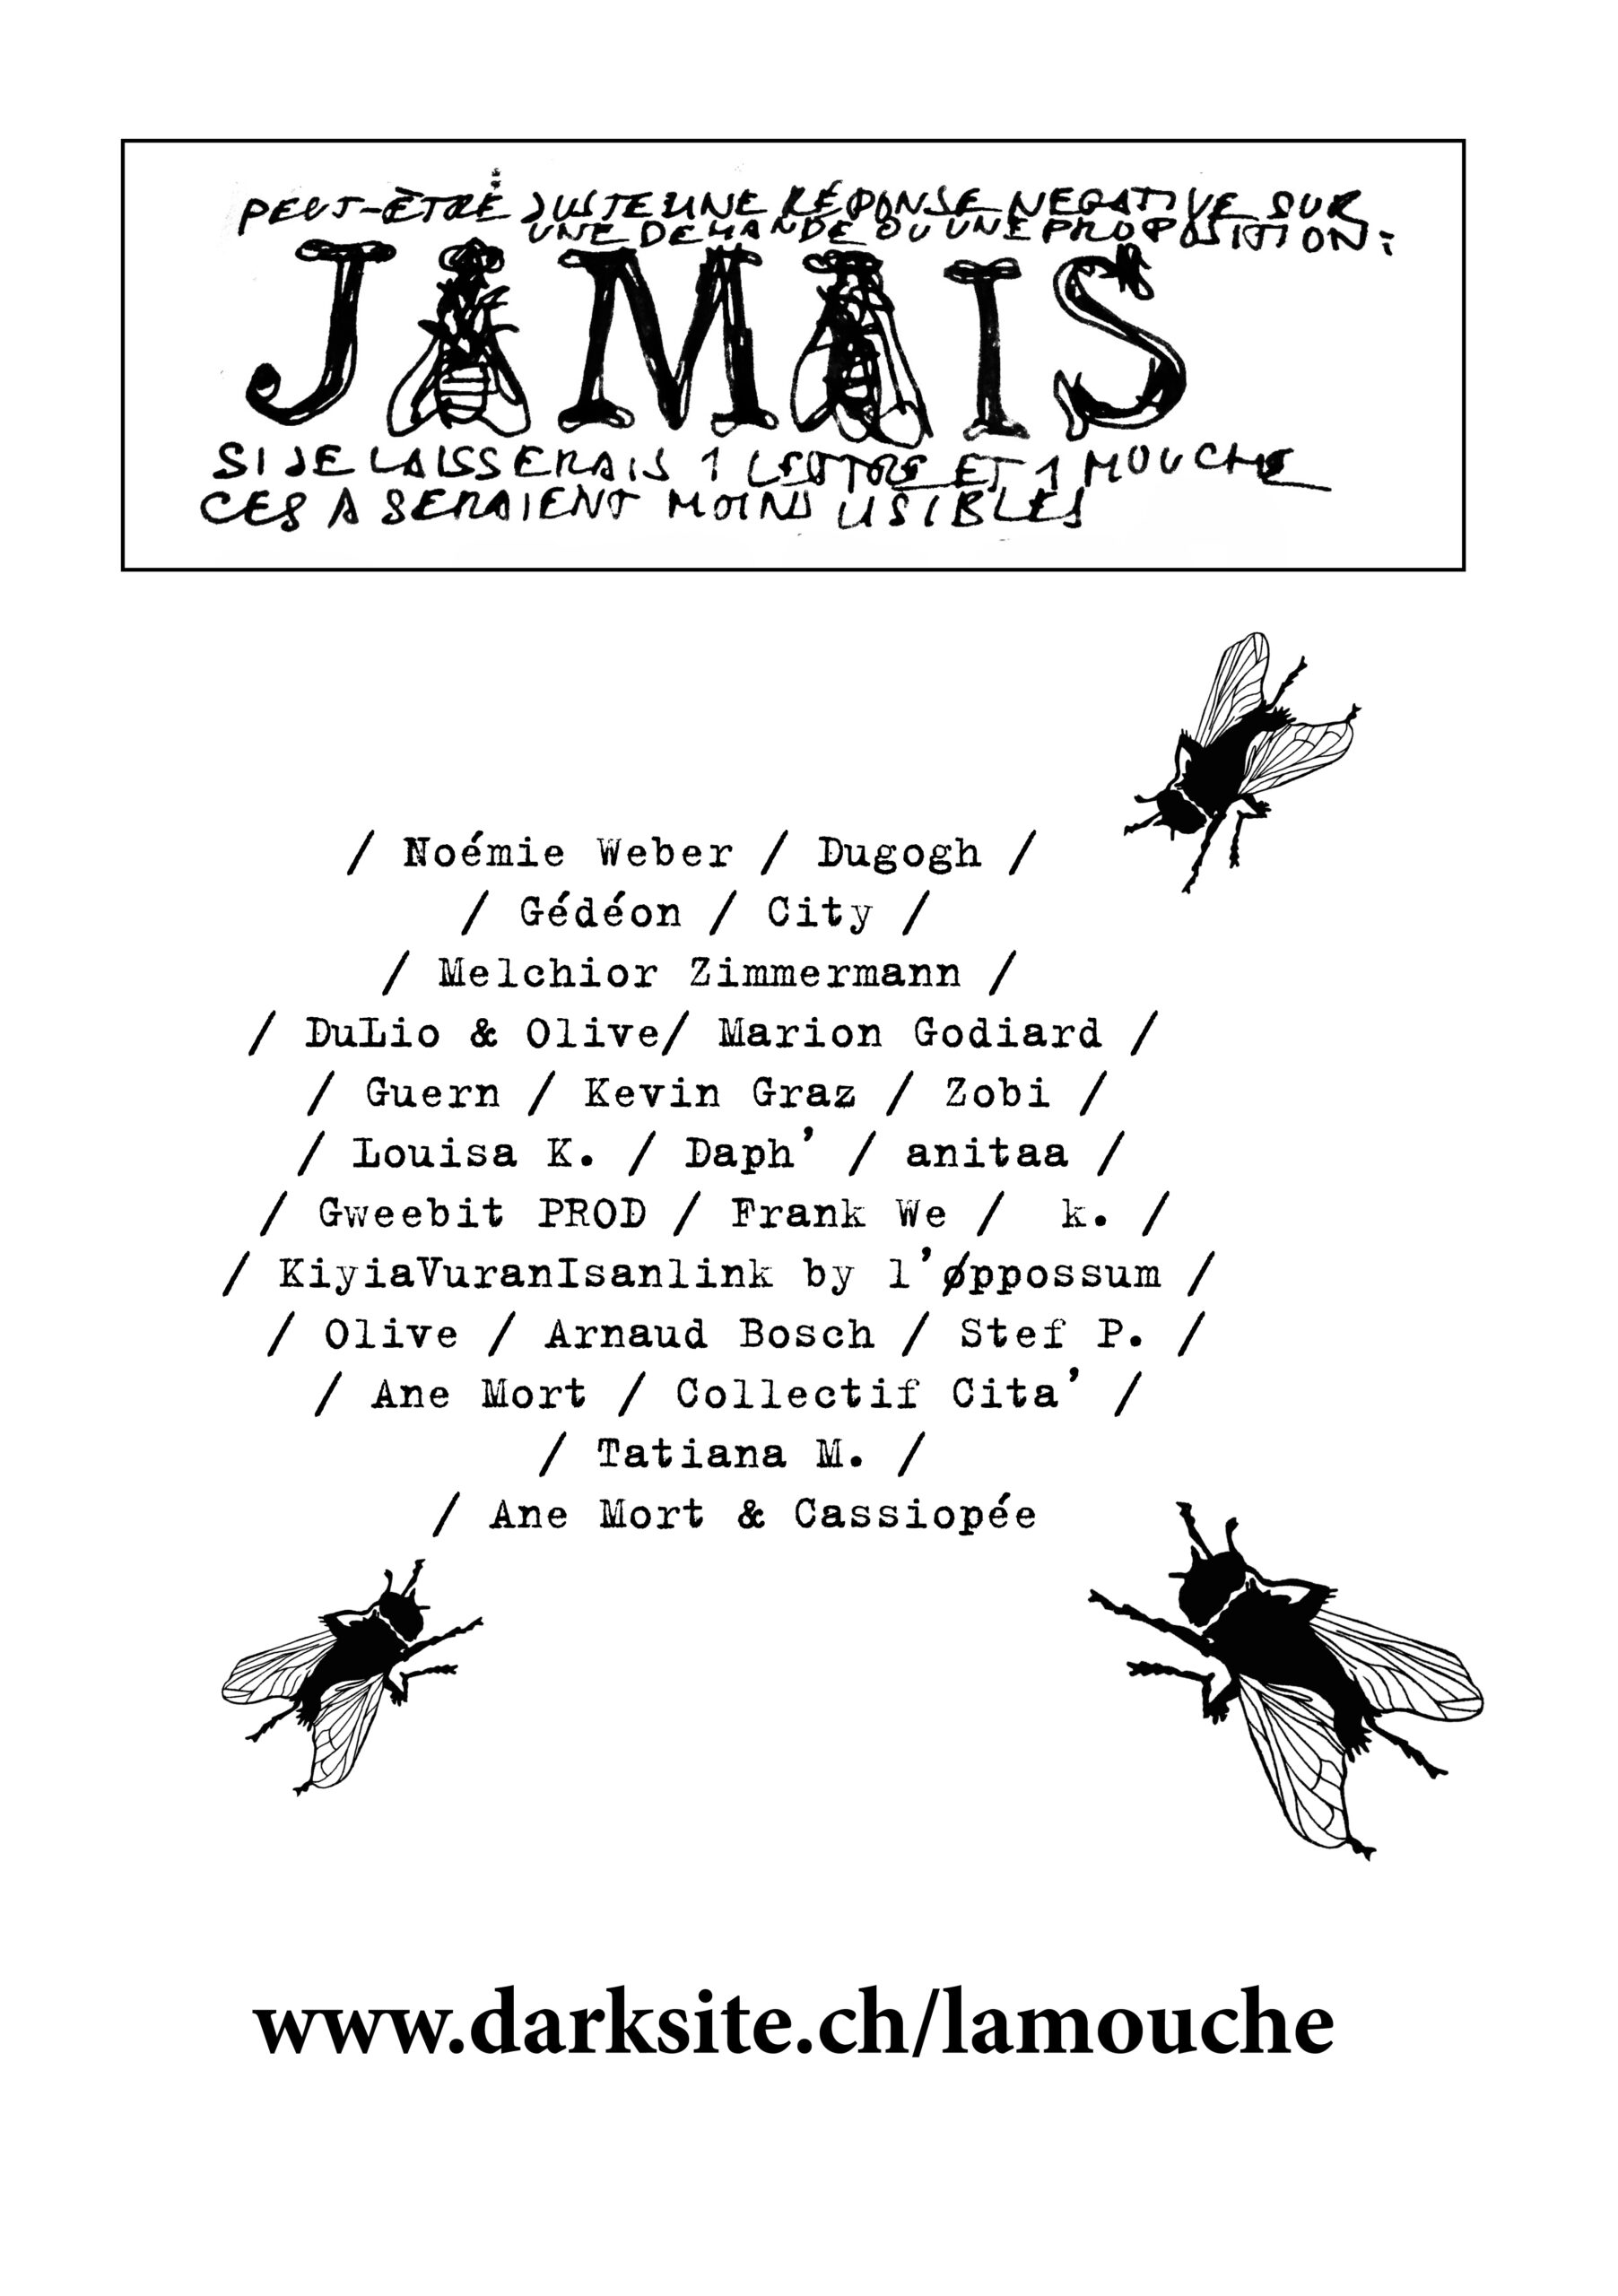 PEUT-ÊTRE JUSTE UNE RÉPONSE NEGATIVE SUR
UNE DEMANDE OU UNE PROPOSITION:
JAMAIS
SI JE LAISSERAIS 1 LETTRE ET 1 MOUCHE
CES A SERAIENT MOINS LISIBLES
/ Noémie Weber / Dugogh /
/ Gédéon / City /
/ Melchior Zimmermann /
/ DuLio & Olive/ Marion Godiard /
/ Guern / Kevin Graz / Zobi /
/ Louisa K. / Daph’ / anitaa /
/ Gweebit PROD / Frank We / k. /
/ KiyiaVuranIsanlink by l’øppossum /
/ Olive / Arnaud Bosch / Stef P. /
/ Ane Mort / Collectif Cita’ /
/ Tatiana M. /
/ Ane Mort & Cassiopée
www.darksite.ch/lamouche